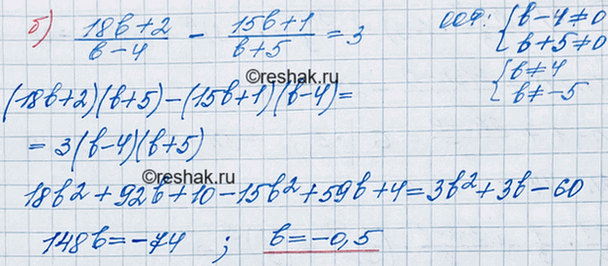 б) (18b+2)/(b-4) - (15b+1)/(b+5) = 3
ОДЗ: { b-4≠0
b+5≠0
{ b≠4
b≠-5
©reshak.ru
(18b+2)(b+5)-(15b+1)(b-4)=
=3(b-4)(b+5)
©reshak.ru
18b²+92b+10-15b²+59b+4=3b²+3b-60
148b=-74 ; b=-0,5